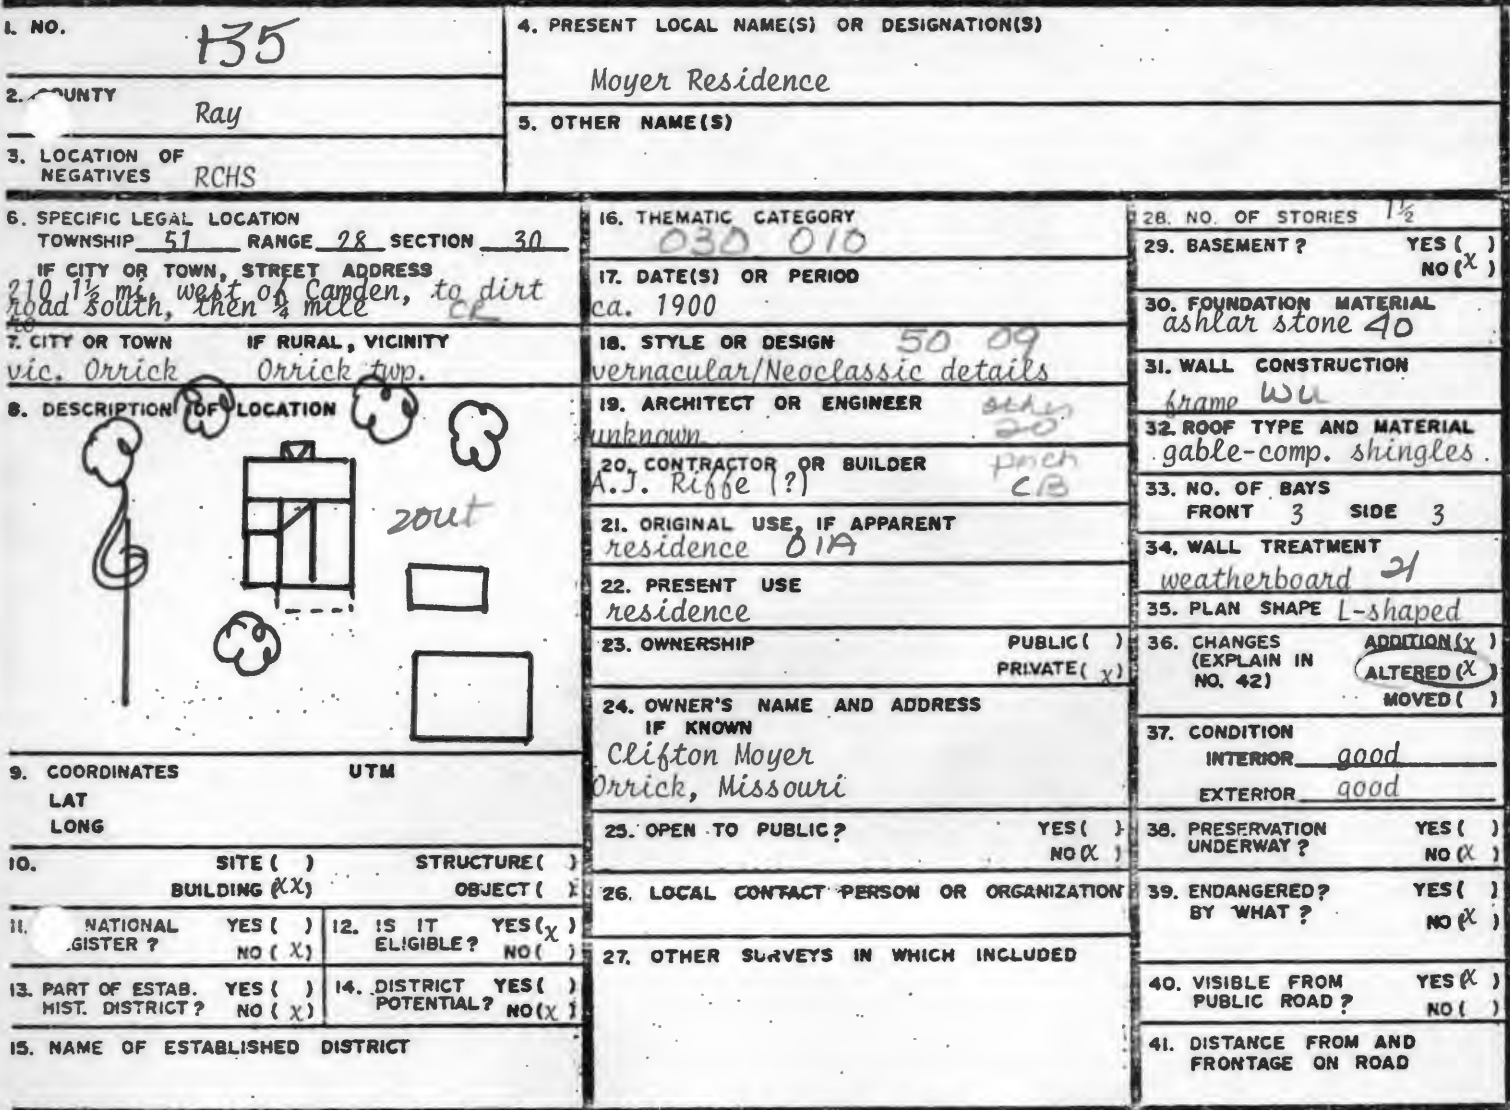 1. NO. 135
2. COUNTY Ray
3. LOCATION OF
NEGATIVES RCHS
4. PRESENT LOCAL NAME(S) OR DESIGNATION(S)
Moyer Residence
5. OTHER NAME(S)
6. SPECIFIC LEGAL LOCATION
TOWNSHIP 51 RANGE 28 SECTION 30
IF CITY OR TOWN, STREET ADDRESS
210 1½ mi. west of Camden, to dirt
road south, then ¼ mile CR
7. CITY OR TOWN IF RURAL, VICINITY
vic. Orrick Orrick twp.
8. DESCRIPTION OF LOCATION
2out
9. COORDINATES UTM
LAT
LONG
10. SITE ( ) STRUCTURE ( )
BUILDING (XX) OBJECT ( )
11. NATIONAL YES ( )
GISTER ? NO ( X )
12. IS IT YES ( X )
ELIGIBLE ? NO ( )
13. PART OF ESTAB. YES ( )
HIST. DISTRICT ? NO ( X )
14. DISTRICT YES ( )
POTENTIAL ? NO ( X )
15. NAME OF ESTABLISHED DISTRICT
16. THEMATIC CATEGORY
030 010
17. DATE(S) OR PERIOD
ca. 1900
18. STYLE OR DESIGN 50 09
vernacular/Neoclassic details
19. ARCHITECT OR ENGINEER
unknown 20
20. CONTRACTOR OR BUILDER porch
A.J. Riffe (?) CB
21. ORIGINAL USE, IF APPARENT
residence 01A
22. PRESENT USE
residence
23. OWNERSHIP PUBLIC ( )
PRIVATE ( X )
24. OWNER'S NAME AND ADDRESS
IF KNOWN
Clifton Moyer
Orrick, Missouri
25. OPEN TO PUBLIC ? YES ( )
NO (X )
26. LOCAL CONTACT PERSON OR ORGANIZATION
27. OTHER SURVEYS IN WHICH INCLUDED
28. NO. OF STORIES 1½
29. BASEMENT ? YES ( )
NO (X )
30. FOUNDATION MATERIAL
ashlar stone 40
31. WALL CONSTRUCTION
frame WU
32. ROOF TYPE AND MATERIAL
gable-comp. shingles.
33. NO. OF BAYS
FRONT 3 SIDE 3
34. WALL TREATMENT
weatherboard 21
35. PLAN SHAPE L-shaped
36. CHANGES ADDITION (X )
(EXPLAIN IN ALTERED (X )
NO. 42) MOVED ( )
37. CONDITION
INTERIOR good
EXTERIOR good
38. PRESERVATION YES ( )
UNDERWAY ? NO (X )
39. ENDANGERED ? YES ( )
BY WHAT ? NO (X )
40. VISIBLE FROM YES (X )
PUBLIC ROAD ? NO ( )
41. DISTANCE FROM AND
FRONTAGE ON ROAD